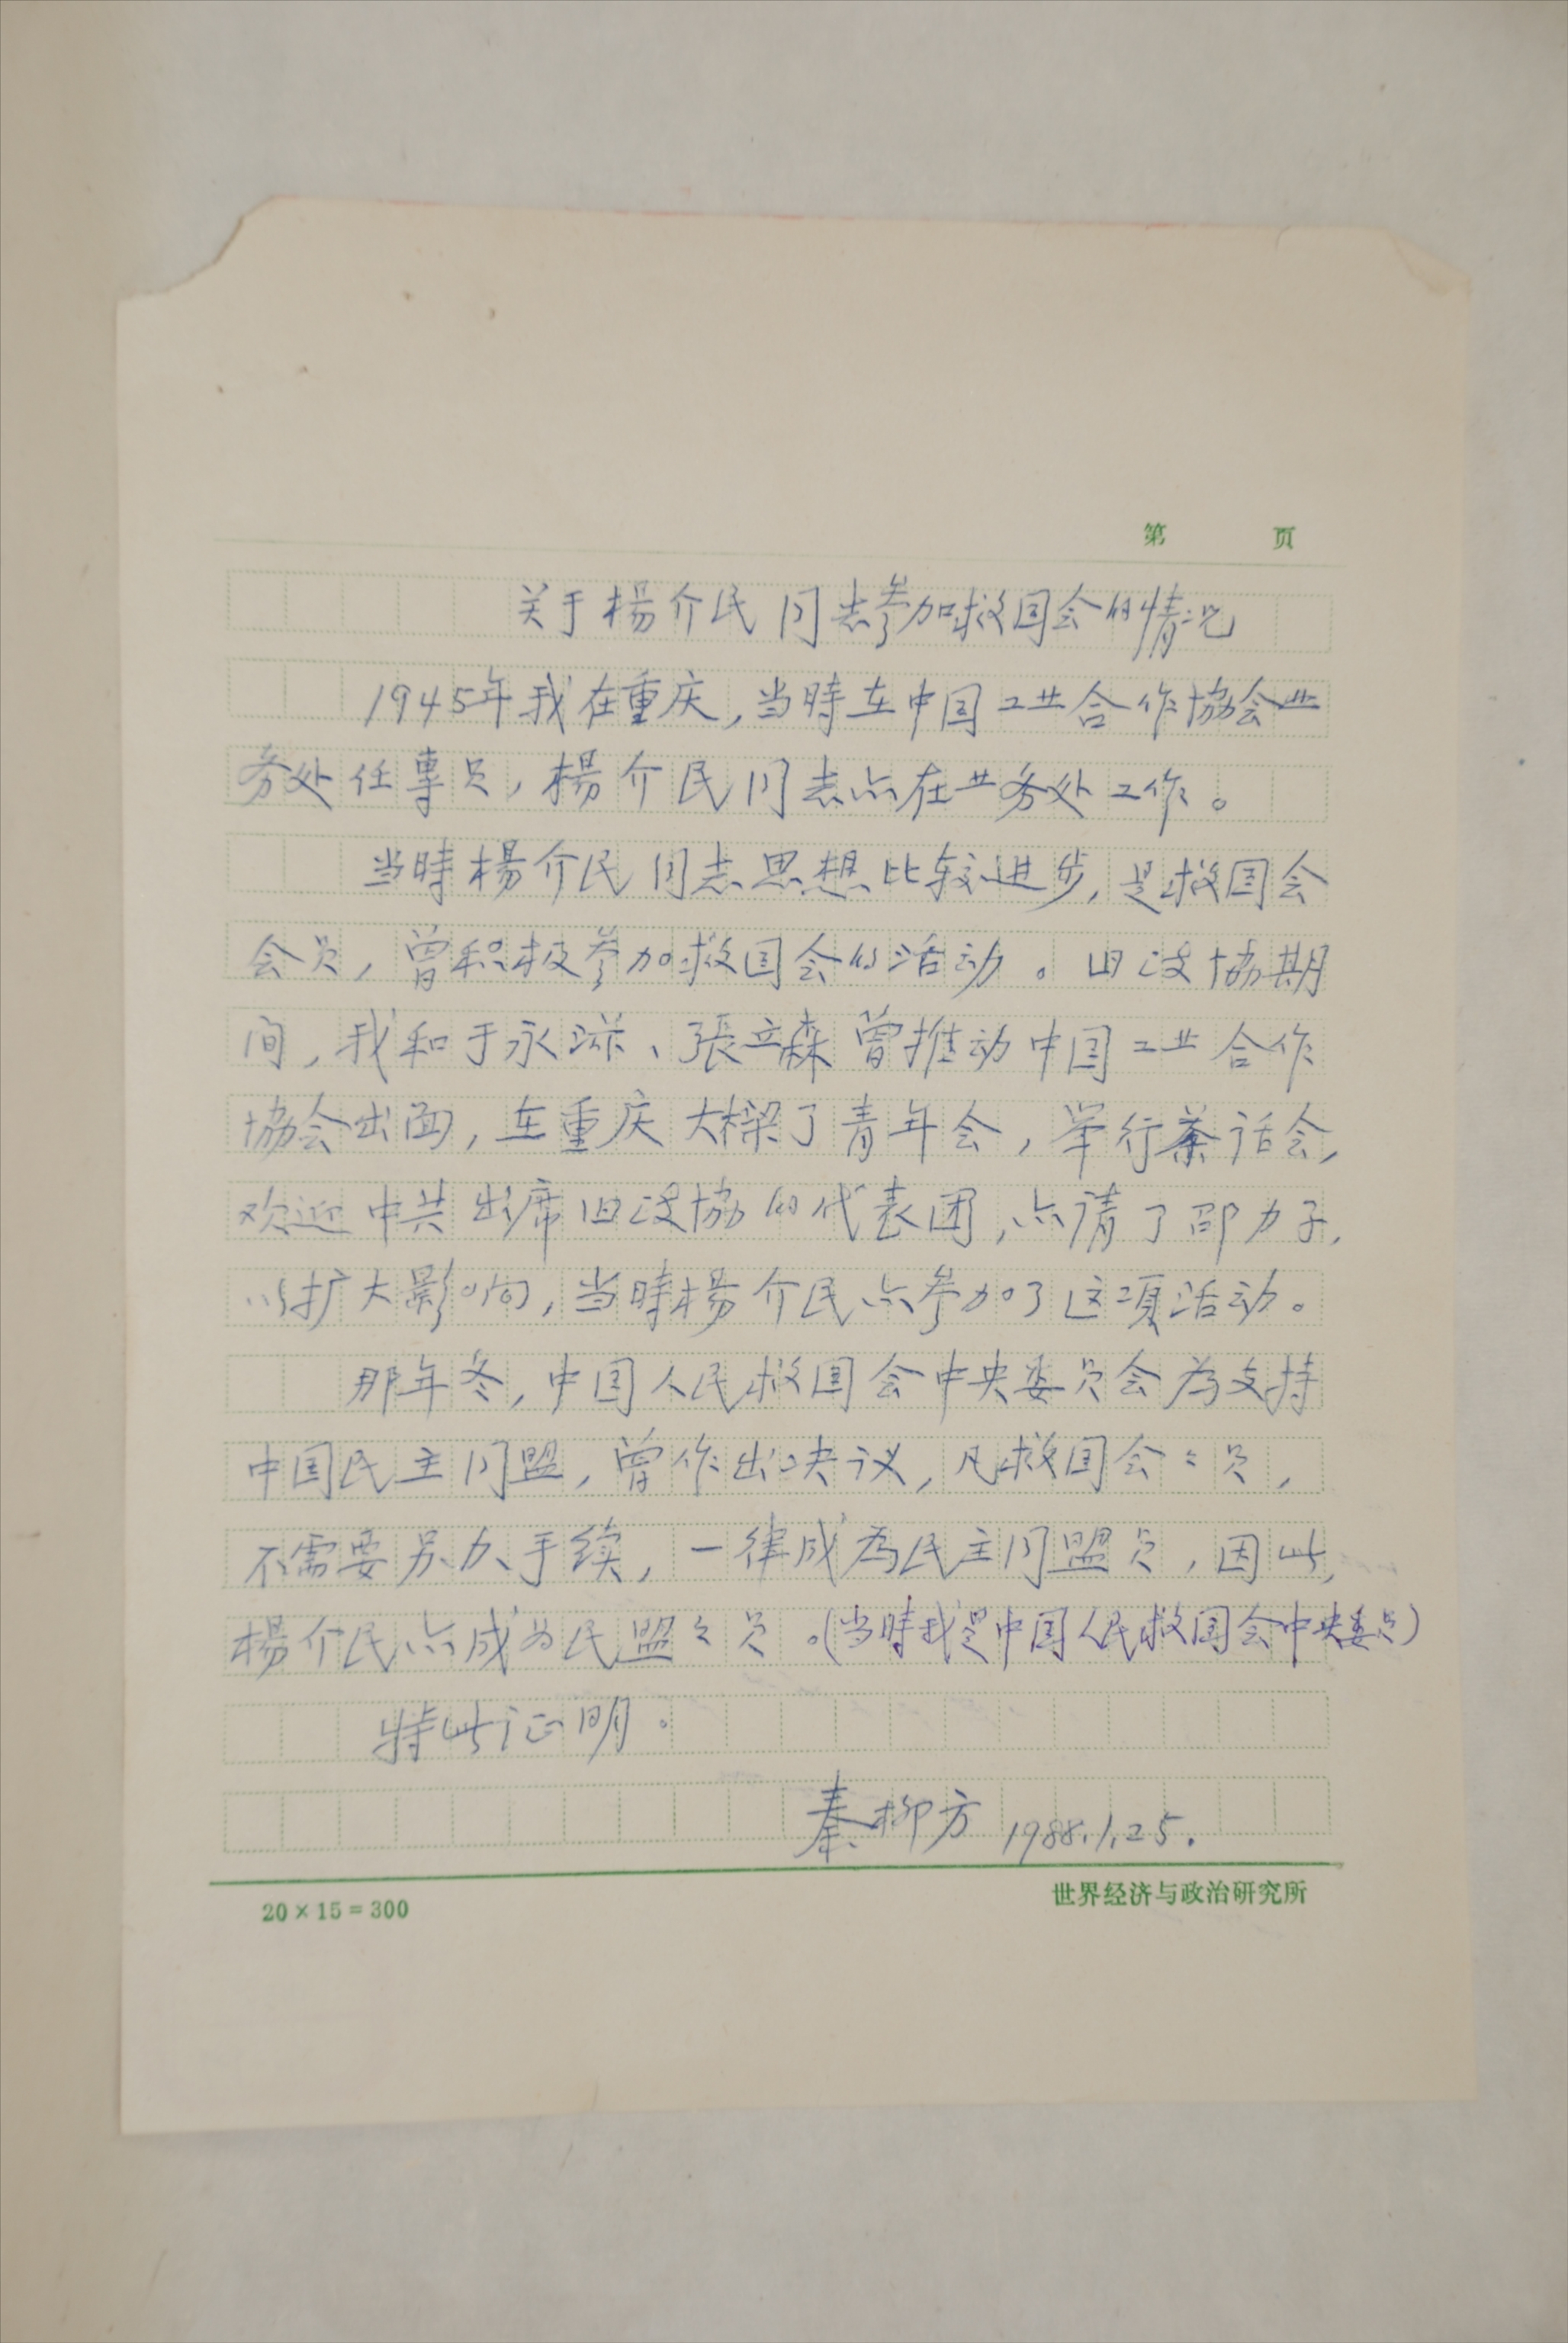 第 页
关于楊介民同志参加救国会的情况
1945年我在重庆,当時在中国工业合作協会业
务处任專员,楊介民同志亦在业务处工作。
当時楊介民同志思想比较进步,是救国会
会员,曾积极参加救国会的活动。旧政協期
间,我和于永滋、張立森曾推动中国工业合作
協会出面,在重庆大樑子青年会,举行茶话会,
欢迎中共出席旧政協的代表团,亦请了邵力子,
以扩大影响,当時楊介民亦参加了这项活动。
那年冬,中国人民救国会中央委员会为支持
中国民主同盟,曾作出决议,凡救国会々员,
不需要另办手续,一律成为民主同盟盟员,因此,
楊介民亦成为民盟之员。(当時我是中国人民救国会中央委员)
特此证明。
秦柳方 1988.1.25.
20×15=300
世界经济与政治研究所